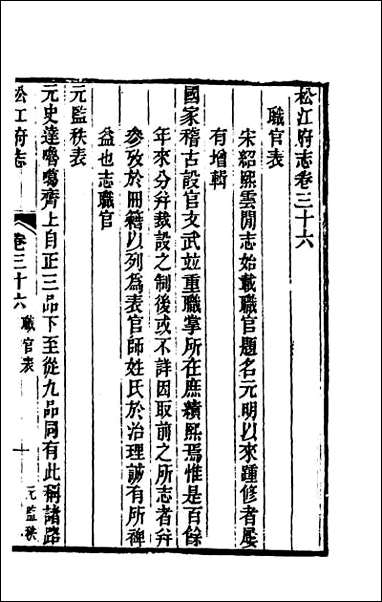 松江府志卷三十六
職官表
宋紹熙雲閒志始載職官題名元明以來踵修者屢
有增輯
國家稽古設官文武竝重職掌所在庶績熙焉惟是百餘
年來分并裁設之制後或不詳因取前之所志者幷
參攷於冊籍以列爲表官師姓氏於治理誠有所裨
益也志職官
元監秩表
元史達嚕噶齊上自正三品下至從九品同有此稱諸路
松江府志
卷三十六 職官表
一
元監秩